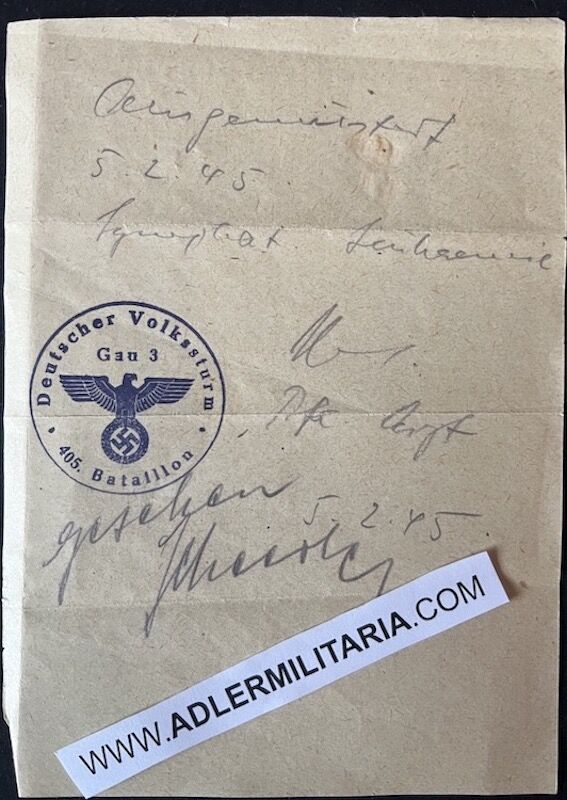 Ausgemustert
5.2.45
Lymphat. Leukaemie
Deutscher Volkssturm
Gau 3
405. Bataillon
Arzt
gesehen 5.2.45
WWW.ADLERMILITARIA.COM